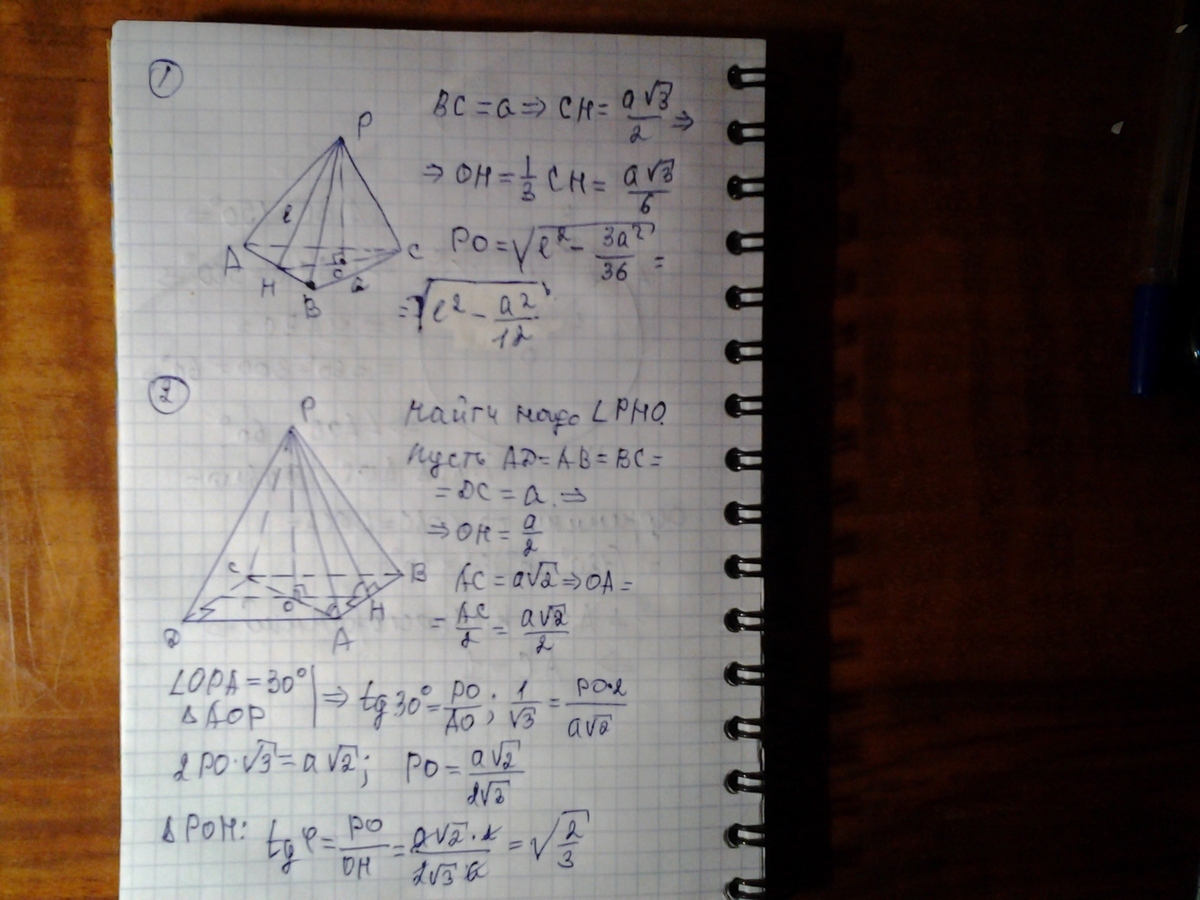 1
P
A
H
B
C
O
l
a
BC = a ⇒ CH = a√3/2 ⇒
⇒ OH = 1/3 CH = a√3/6
PO = √(l² - 3a²/36) =
= √(l² - a²/12)
2
P
C
B
O
H
D
A
Найти надо ∠PHO.
Пусть AD = AB = BC =
= DC = a ⇒
⇒ OH = a/2
AC = a√2 ⇒ OA =
= AC/2 = a√2/2
∠OPA = 30° | ⇒ tg 30° = PO/AO ; 1/√3 = PO·2/a√2
ΔAOP
2PO·√3 = a√2 ; PO = a√2/2√2
ΔPOH: tg φ = PO/OH = a√2·2/2√3 a = √(2/3)